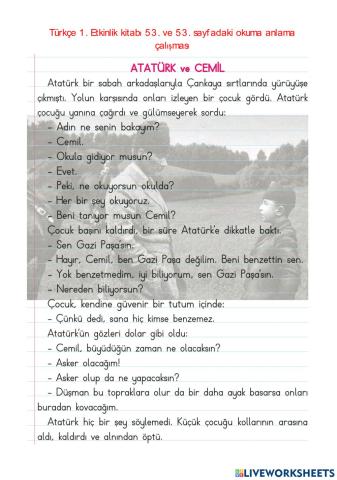 Türkçe 1. Etkinlik kitabı 53. ve 53. sayfadaki okuma anlama
çalışması
ATATÜRK ve CEMİL
Atatürk bir sabah arkadaşlarıyla Çankaya sırtlarında yürüyüşe
çıkmıştı. Yolun karşısında onları izleyen bir çocuk gördü. Atatürk
çocuğu yanına çağırdı ve gülümseyerek sordu:
- Adın ne senin bakayım?
- Cemil.
- Okula gidiyor musun?
- Evet.
- Peki, ne okuyorsun okulda?
- Her bir şey okuyoruz.
- Beni tanıyor musun Cemil?
Çocuk başını kaldırdı, bir süre Atatürk'e dikkatle baktı.
- Sen Gazi Paşa'sın.
- Hayır, Cemil, ben Gazi Paşa değilim. Beni benzettin sen.
- Yok benzetmedim, iyi biliyorum, sen Gazi Paşa'sın.
- Nereden biliyorsun?
Çocuk, kendine güvenir bir tutum içinde:
- Çünkü dedi, sana hiç kimse benzemez.
Atatürk'ün gözleri dolar gibi oldu:
- Cemil, büyüdüğün zaman ne olacaksın?
- Asker olacağım!
- Asker olup da ne yapacaksın?
- Düşman bu topraklara olur da bir daha ayak basarsa onları
buradan kovacağım.
Atatürk hiç bir şey söylemedi. Küçük çocuğu kollarının arasına
aldı, kaldırdı ve alnından öptü.
LIVEWORKSHEETS